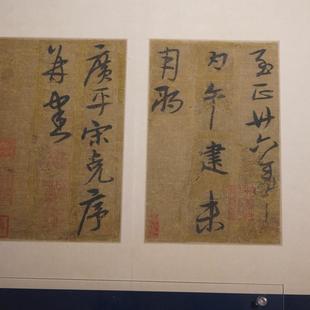 至正廿六年
丙午建未
月
廣平宋克序
并書